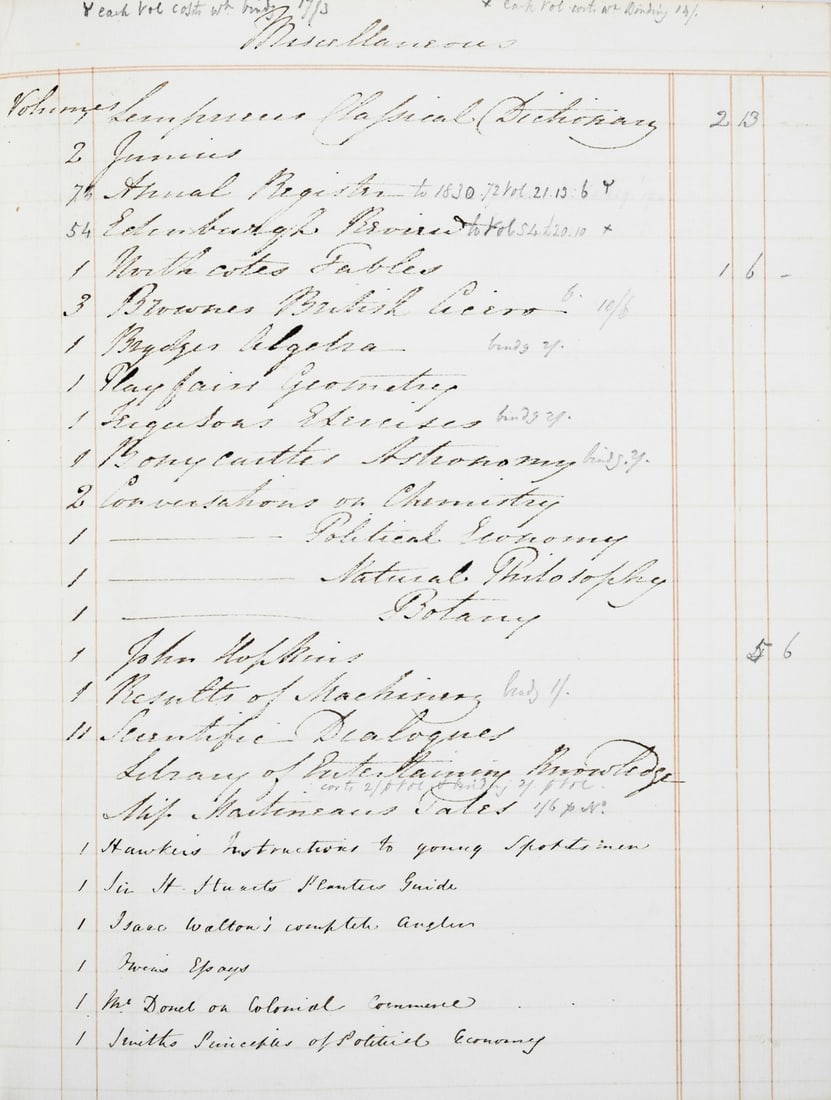 Y each Vol costs wh bindg 17/3 + Each Vol costs wh Binding 14/.
Miscellaneous
Volumes Lempriere's Classical Dictionary 2 13
2 Junius
72 Annual Register to 1830. 72 Vol. 21.13.6 Y
54 Edinburgh Review to Vol 54 £20.10 +
1 Northcotes Fables 1 6 -
3 Brownes British Cicero 10/6
1 Brydges Algebra bindg 2/.
1 Playfairs Geometry
1 Fergusons Exercises bindg 2/.
1 Bonycastles Astronomy bindg. 2/.
2 Conversations on Chemistry
1 ——— Political Economy
1 ——— Natural Philosophy
1 ——— Botany
1 John Hopkins 5 6
1 Results of Machinery bindg 1/.
Scientific Dialogues
Library of Entertaining Knowledge
costs 2/ p Vol & binding 2/. p Vol.
Miss Martineaus Tales 1/6 p No.
1 Hawkers Instructions to young Sportsmen
1 Sir H. Stuarts Planters Guide
1 Isaac Walton's complete Angler
1 Irvins Essays
1 Mc Donel on Colonial Commerce
1 Smiths Principles of Political Economy